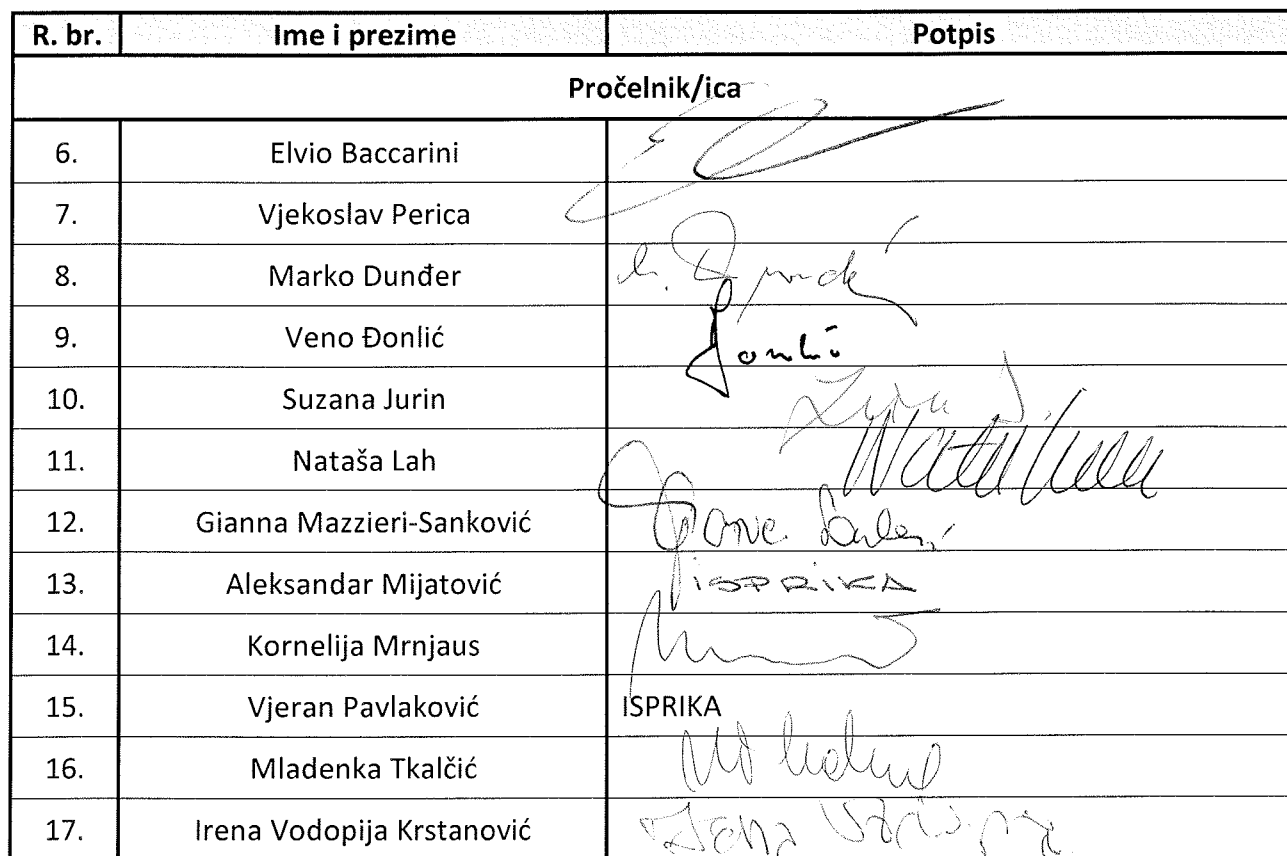 R. br. Ime i prezime Potpis
Pročelnik/ica
6. Elvio Baccarini
7. Vjekoslav Perica
8. Marko Dunđer
9. Veno Đonlić
10. Suzana Jurin
11. Nataša Lah
12. Gianna Mazzieri-Sanković
13. Aleksandar Mijatović ISPRIKA
14. Kornelija Mrnjaus
15. Vjeran Pavlaković ISPRIKA
16. Mladenka Tkalčić
17. Irena Vodopija Krstanović